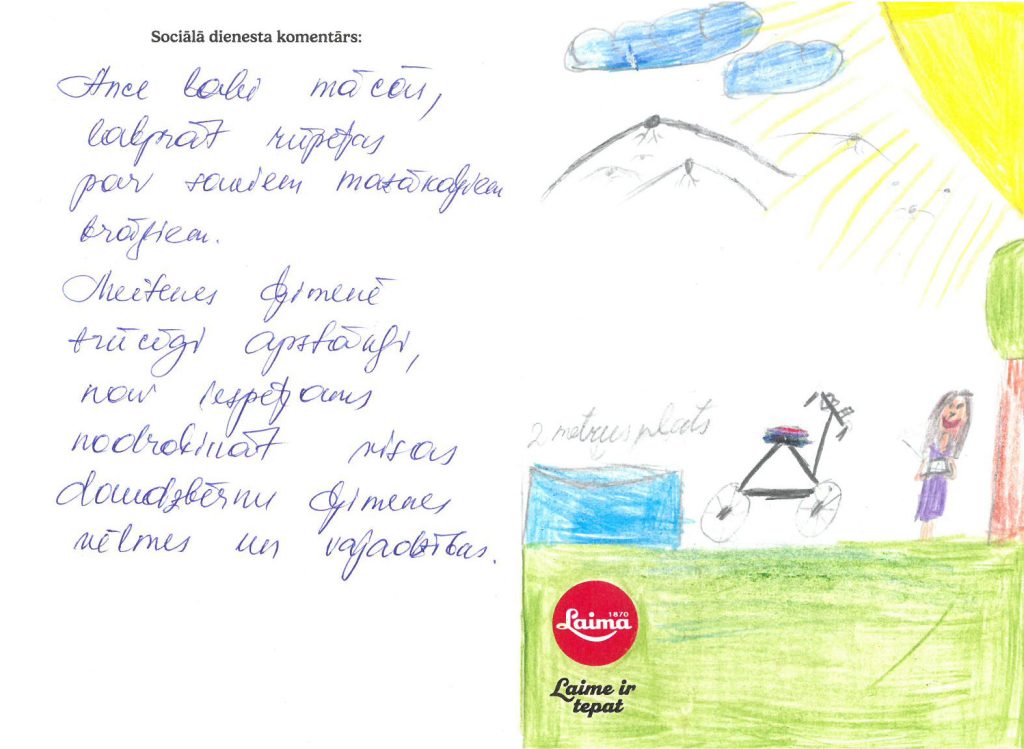 Sociālā dienesta komentārs:
Ance labi mācās,
labprāt rūpējas
par saviem mazākajiem
brāļiem.
Meitenes ģimenē
trūcīgi apstākļi,
nav iespējams
nodrošināt visas
daudzbērnu ģimenes
vēlmes un vajadzības.
2 metrus plats
Laima
1870
Laime ir
tepat